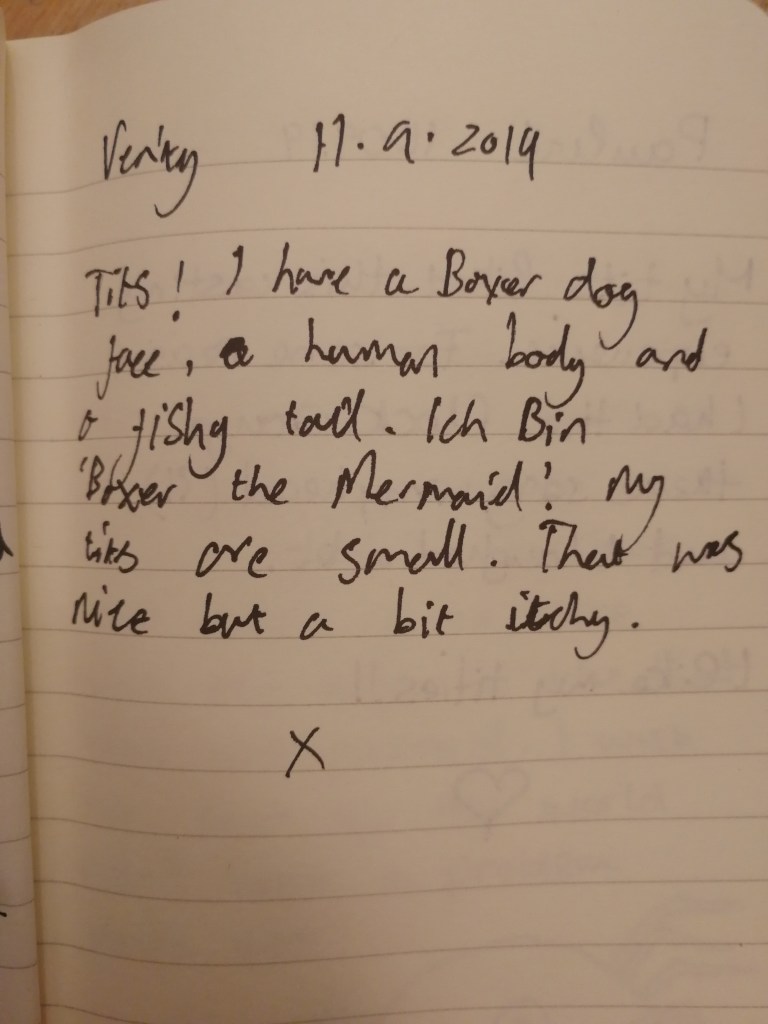 Verity 11.9.2019
Tits! I have a Boxer dog
face, a human body and
a fishy tail. Ich Bin
'Boxer the Mermaid! My
tits are small. That was
nice but a bit itchy.
X